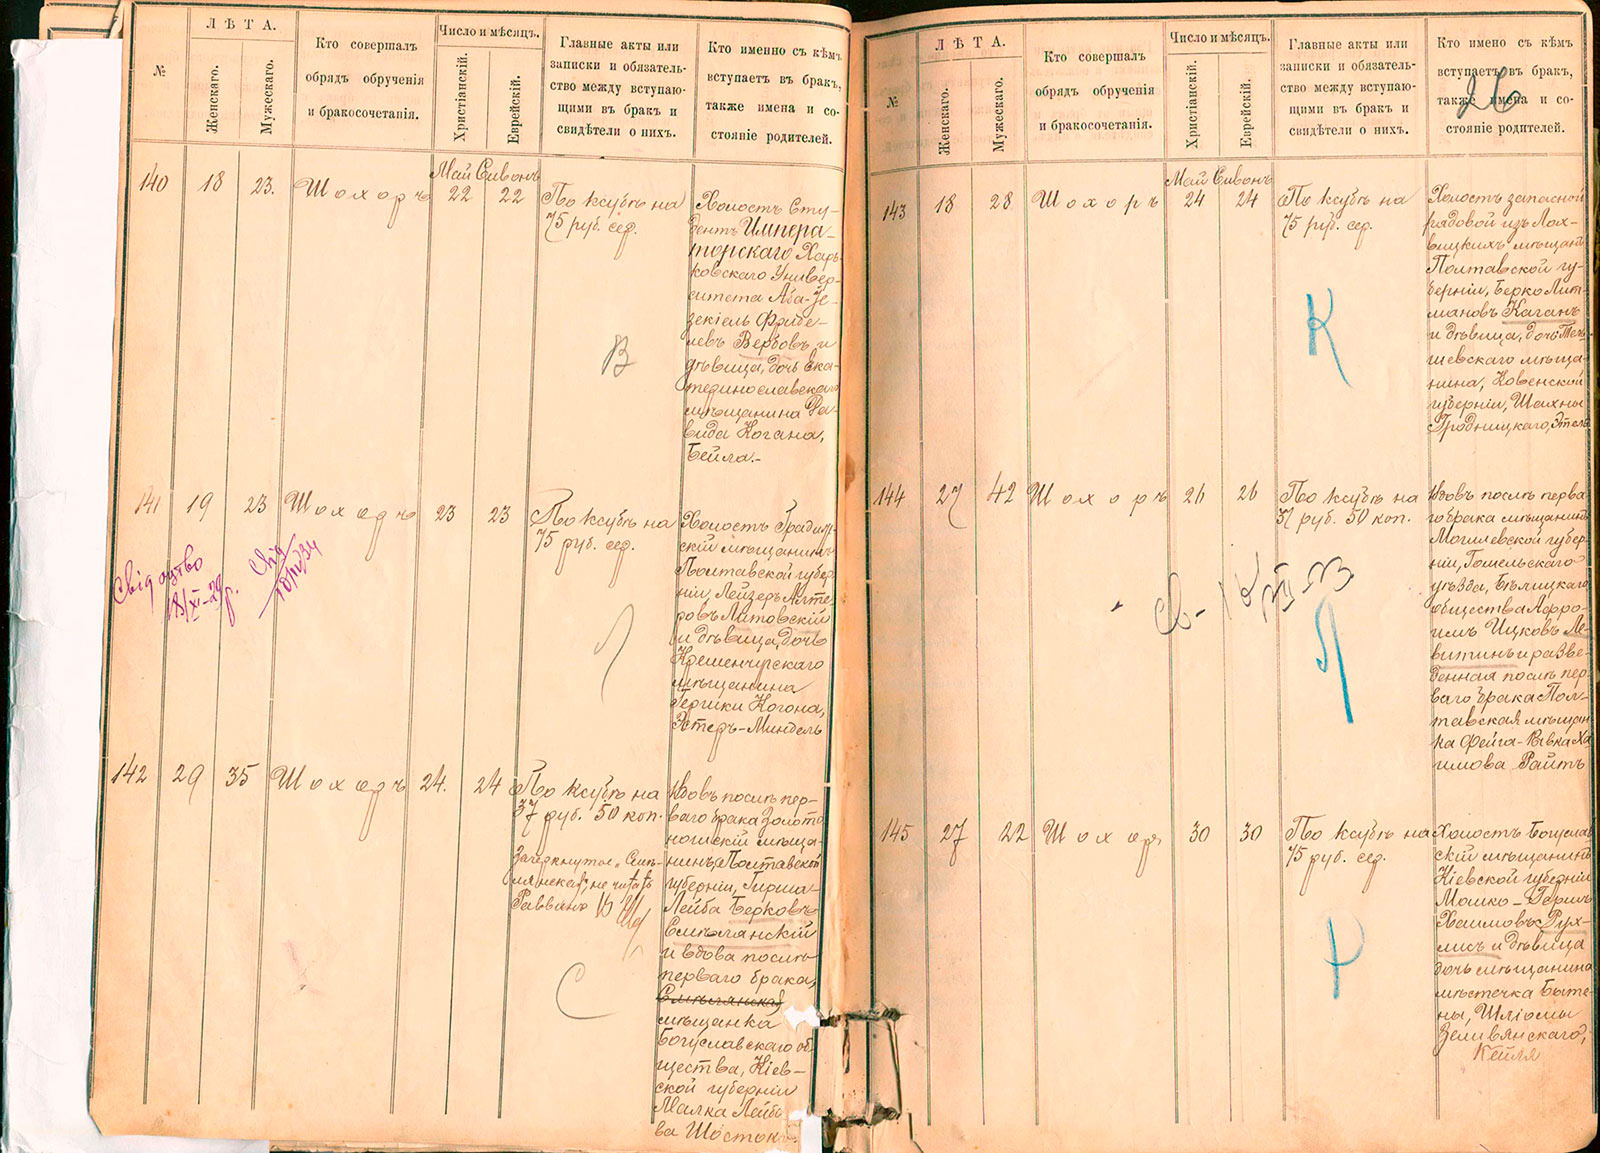 №
ЛѢТА.
Женскаго.
Мужескаго.
Кто совершалъ
обрядъ обрученія
и бракосочетанія.
Число и мѣсяцъ.
Христіанскій.
Еврейскій.
Главные акты или
записки и обязатель-
ство между вступаю-
щими въ бракъ и
свидѣтели о нихъ.
Кто именно съ кѣмъ
вступаетъ въ бракъ,
также имена и со-
стояніе родителей.
140
18
23.
Шохоръ
Май Сивонъ
22 22
По ксубѣ на
75 руб. сер.
В
Холостъ Сту-
дентъ Импера-
торскаго Харь-
ковскаго Универ-
ситета Аба-Іе-
зекіель Фрабе-
левъ Вербовъ и
дѣвица, дочь Ека-
теринославскаго
мѣщанина Да-
вида Когана,
Бейла.-
141
19
23
Шохоръ
23 23
По ксубѣ на
75 руб. сер.
Свідоцтво
18/XI-29р.
Свід
10/IV 34
Л
Холостъ Градиж-
скій мѣщанинъ
Полтавской губер-
ніи, Лейзеръ Алте-
ровъ Литовскій
и дѣвица, дочь
Кременчугскаго
мѣщанина
Гершки Когона,
Эстеръ-Миндель
142
29
35
Шохоръ
24. 24
По ксубѣ на
37 руб. 50 коп.
Зачеркнутое „Смѣ-
лянская", не читать
Раввинъ
С
Вдовъ послѣ пер-
ваго брака Золото-
ношскій мѣща-
нинъ, Полтавской
губерніи, Гирша-
Лейба Берковъ
Смѣлянскій
и вдова послѣ
перваго брака,
Смѣлянская
мѣщанка
Богуславскаго об-
щества, Кіев-
ской губерніи
Малка Лейбо-
ва Шостокъ.
26
№
ЛѢТА.
Женскаго.
Мужескаго.
Кто совершалъ
обрядъ обрученія
и бракосочетанія.
Число и мѣсяцъ.
Христіанскій.
Еврейскій.
Главные акты или
записки и обязатель-
ство между вступаю-
щими въ бракъ и
свидѣтели о нихъ.
Кто имено съ кѣмъ
вступаетъ въ бракъ,
также имена и со-
стояніе родителей.
143
18
28
Шохоръ
Май Сивонъ
24 24
По ксубѣ на
75 руб. сер.
К
Холостъ запасной
рядовой изъ Лох-
вицкихъ мѣщанъ
Полтавской гу-
берніи, Берко Лит-
мановъ Каганъ
и дѣвица, дочь Тель-
шевскаго мѣща-
нина, Ковенской
губерніи, Шахны
Гродницкаго, Этель
144
27
42
Шохоръ
26 26
По ксубѣ на
37 руб. 50 коп.
Л
Вдовъ послѣ перва-
го брака мѣщанинъ
Могилевской губер-
ніи, Гомельскаго
уѣзда, Бѣлицкаго
общества Афро-
имъ Ицковъ Ле-
витинъ и разве-
денная послѣ пер-
ваго брака Пол-
тавская мѣщан-
ка Фейга-Ривка Ха-
имова Райтъ
145
27
22
Шохоръ
30 30
По ксубѣ на
75 руб. сер.
Р
Холостъ Богуслав-
скій мѣщанинъ
Кіевской губерніи
Мошко-Гершъ
Хаимовъ Рух-
лисъ и дѣвица
дочь мѣщанина
мѣстечка Быте-
ны, Шліомы
Зеливянскаго,
Кейля